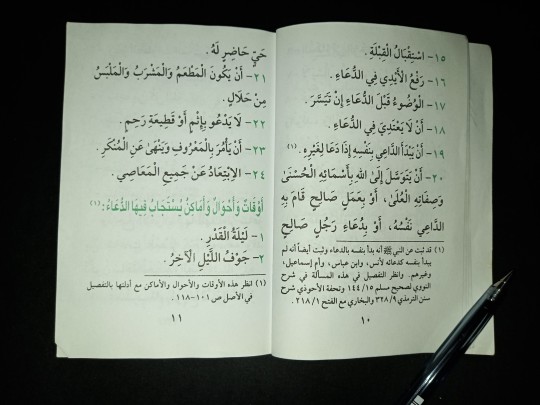 ١٥- اسْتِقْبَالُ الْقِبْلَةِ .
١٦- رَفْعُ الْأَيْدِي فِي الدُّعَاءِ .
١٧- الْوُضُوءُ قَبْلَ الدُّعَاءِ إِنْ تَيَسَّرَ .
١٨- أَنْ لَا يَعْتَدِيَ فِي الدُّعَاءِ .
١٩- أَنْ يَبْدَأَ الدَّاعِي بِنَفْسِهِ إِذَا دَعَا لِغَيْرِهِ . (١)
٢٠- أَنْ يَتَوَسَّلَ إِلَى اللهِ بِأَسْمَائِهِ الْحُسْنَى
وَصِفَاتِهِ الْعُلَى، أَوْ بِعَمَلٍ صَالِحٍ قَامَ بِهِ
الدَّاعِي نَفْسُهُ، أَوْ بِدُعَاءِ رَجُلٍ صَالِحٍ
(١) قد ثبت عن النبي ﷺ أنه بدأ بنفسه بالدعاء وثبت أيضاً أنه لم
يبدأ بنفسه كدعائه لأنس، وابن عباس، وأم إسماعيل،
وغيرهم. وانظر التفصيل في هذه المسألة في شرح
النووي لصحيح مسلم ١٤٤/١٥ وتحفة الأحوذي شرح
سنن الترمذي ٣٢٨/٩ والبخاري مع الفتح ٢١٨/١ .
١٠
حَيٍّ حَاضِرٍ لَهُ .
٢١- أَنْ يَكُونَ الْمَطْعَمُ وَالْمَشْرَبُ وَالْمَلْبَسُ
مِنْ حَلَالٍ .
٢٢- لَا يَدْعُو بِإِثْمٍ أَوْ قَطِيعَةِ رَحِمٍ .
٢٣- أَنْ يَأْمُرَ بِالْمَعْرُوفِ وَيَنْهَى عَنِ الْمُنْكَرِ .
٢٤- الِابْتِعَادُ عَنْ جَمِيعِ الْمَعَاصِي .
أَوْقَاتٌ وَأَحْوَالٌ وَأَمَاكِنُ يُسْتَجَابُ فِيهَا الدُّعَاءُ : (١)
١- لَيْلَةُ الْقَدْرِ .
٢- جَوْفُ اللَّيْلِ الْآخِرُ .
(١) انظر هذه الأوقات والأحوال والأماكن مع أدلتها بالتفصيل
في الأصل ص ١٠١-١١٨ .
١١